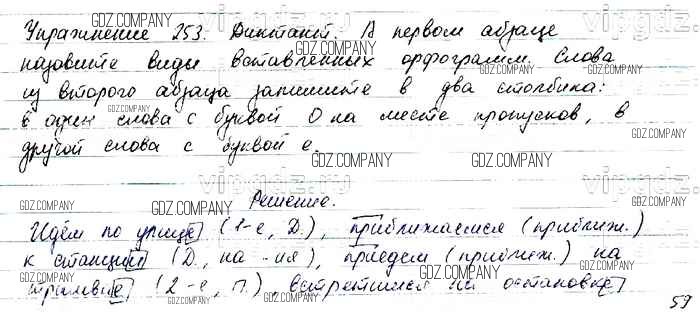 Упражнение 253. Диктант. В первом абзаце
назовите виды вставленных орфограмм. Слова
из второго абзаца запишите в два столбика:
в один слова с буквой О на месте пропусков, в
другой слова с буквой е.
Решение.
Идём по улице (1-е, Д.), приближаемся (приближ.)
к станции (Д., на -ия), приедем (приближ.) на
трамвае (2-е, П.), встретимся на остановке
59
GDZ.COMPANY
vipgdz.ru